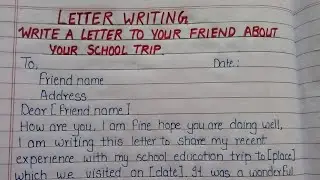 LETTER WRITING
WRITE A LETTER TO YOUR FRIEND ABOUT
YOUR SCHOOL TRIP.
To, Date:
Friend name
Address
Dear [Friend name]
How are you. I am fine hope you are doing well,
I am writing this letter to share my recent
experience with my school education trip to [place]
which we visited on [date]. It was a wonderful